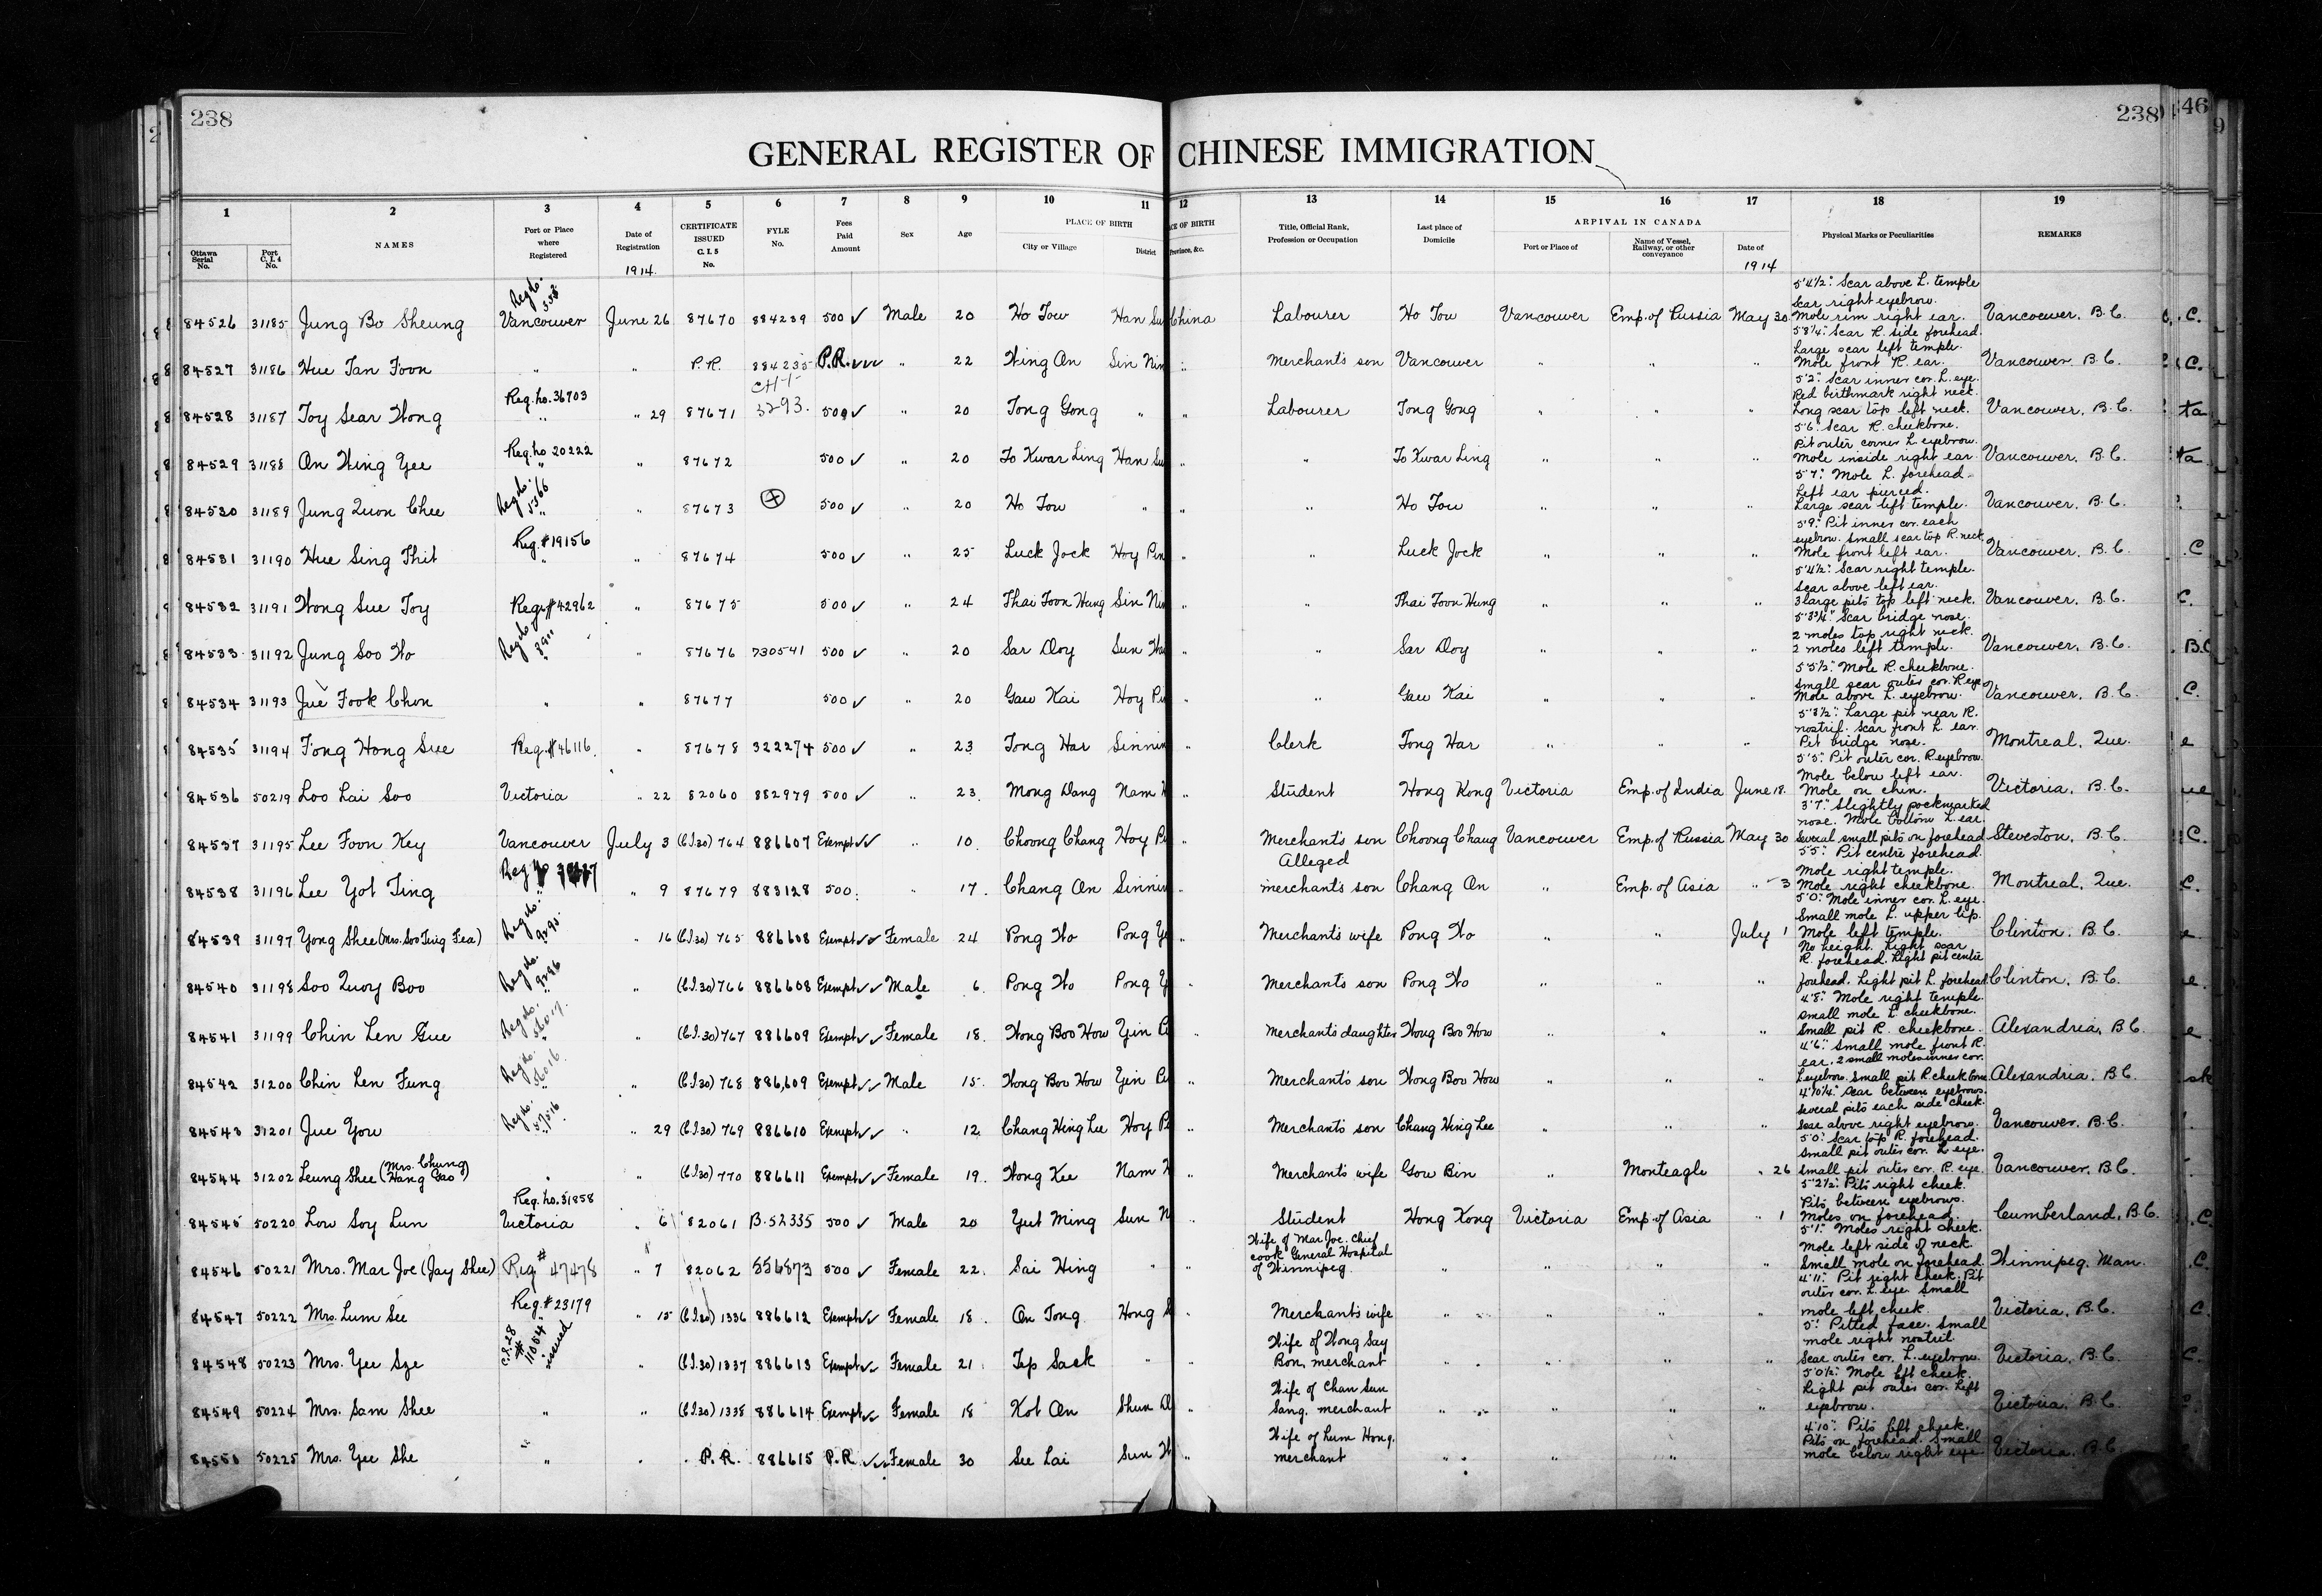 238
238
46
9
GENERAL REGISTER OF CHINESE IMMIGRATION
1 2 3 4 5 6 7 8 9 10 11 12 13 14 15 16 17 18 19
PLACE OF BIRTH
CE OF BIRTH
ARRIVAL IN CANADA
Ottawa Serial No.
Port C. I. 4 No.
NAMES
Port or Place where Registered
Date of Registration
1914.
CERTIFICATE ISSUED C. I. 5 No.
FYLE No.
Fees Paid Amount
Sex
Age
City or Village
District
Province, &c.
Title, Official Rank, Profession or Occupation
Last place of Domicile
Port or Place of
Name of Vessel, Railway, or other conveyance
Date of
1914
Physical Marks or Peculiarities
REMARKS
84526 31185 Jung Bo Sheung Vancouver June 26 87670 884239 500 ✓ Male 20 Ho Tow Han Su China Labourer Ho Tow Vancouver Emp. of Russia May 30 5'4½": Scar above L. temple Scar right eyebrow. Mole rim right ear. Vancouver, B.C.
84527 31186 Hue Tan Foon " " P.R. 884235 P.R. ✓✓ " 22 Wing On Sin Nin " Merchant's son Vancouver " " " 5'3¼": Scar R. side forehead. Large scar left temple. Mole front R. ear. Vancouver. B.C.
84528 31187 Toy Sear Wong Reg. no. 36703 " " 29 87671 CH-1- 3293. 500 ✓ " 20 Tong Gong " " Labourer Tong Gong " " " 5'2": Scar inner cor. L. eye. Red birthmark right neck. Long scar top left neck. Vancouver, B.C.
84529 31188 On Wing Yee Reg. no 20222 " " 87672 500 ✓ " 20 To Kwar Ling Han Su " " To Kwar Ling " " " 5'6": Scar R. cheekbone. Pit outer corner L. eyebrow. Mole inside right ear. Vancouver, B.C.
84530 31189 Jung Quon Chee Reg. No. 5366 " " 87673 500 ✓ " 20 Ho Tow " " " Ho Tow " " " 5'7": Mole L. forehead. Left ear pierced. Large scar left temple. Vancouver, B.C.
84531 31190 Hue Sing Thit Reg. #19156 " " 87674 500 ✓ " 25 Luck Jock Hoy Pin " " Luck Jock " " " 5'9": Pit inner cor. each eyebrow. Small scar top R. neck Mole front left ear. Vancouver, B.C.
84532 31191 Wong Sue Toy Reg. #42962 " 87675 500 ✓ " 24 Thai Toon Hung Sin Nin " " Thai Toon Hung " " " 5'4½": Scar right temple. Scar above left ear. 3 large pits top left neck. Vancouver, B.C.
84533 31192 Jung Soo Ho Reg. No. 3911 " " 87676 730541 500 ✓ " 20 Sar Doy Sun " " Sar Doy " " " 5'3¾": Scar bridge nose. 2 moles top right neck. 2 moles left temple. Vancouver, B.C.
84534 31193 Jue Fook Chon " " 87677 500 ✓ " 20 Gaw Kai Hoy Pin " " Gaw Kai " " " 5'5½": Mole R. cheekbone. Small scar outer cor. R eye Mole above L. eyebrow. Vancouver, B.C.
84535 31194 Tong Hong Sue Reg. #46116. " 87678 322274 500 ✓ " 23 Tong Har Sinnin " Clerk Tong Har " " " 5'3½": Large pit near R. nostril. Scar front L. ear. Pit bridge nose. Montreal, Que.
84536 50219 Loo Lai Soo Victoria " 22 82060 882979 500 ✓ " 23. Mong Dang Nam " Student Hong Kong Victoria Emp. of India June 18. 5'5": Pit outer cor. R eyebrow. Mole below left ear. Mole on chin. Victoria, B.C.
84537 31195 Lee Foon Key Vancouver July 3 (C.I.30) 764 886607 Exempt ✓✓ " 10. Choong Chang Hoy Pi " Merchant's son Choong Chang Vancouver Emp. of Russia May 30 3'7": Slightly pockmarked nose. Mole bottom L. ear. Several small pits on forehead Steveston, B.C.
84538 31196 Lee Yot Ting " 9 87679 883128 500. " 17. Chang On Sinnin " Alleged merchant's son Chang On " Emp. of Asia " 3 5'5": Pit centre forehead. Mole right temple. Mole right cheekbone. Montreal, Que.
84539 31197 Yong Shee (Mrs. Soo Ting Fea) Reg. No. 9295. " 16 (C.I.30) 765 886608 Exempt ✓✓ Female 24 Pong Wo Pong Y " Merchant's wife Pong Wo " " July 1 5'0": Mole inner cor. L. eye. Small mole L. upper lip. Mole left temple. Clinton, B.C.
84540 31198 Soo Quoy Boo Reg. No. 9296 " (C.I.30) 766 886608 Exempt ✓✓ Male 6. Pong Wo Pong Y " Merchant's son Pong Wo " " " No height. Light scar R. forehead. Light pit centre forehead. Light pit L. forehead Clinton, B.C.
84541 31199 Chin Len Gue Reg. No. 36017. " (C.I.30) 767 886609 Exempt ✓✓ Female 18. Wong Boo How Yin " Merchant's daughter Wong Boo How " " " 4'8": Mole right temple. Small mole L. cheekbone. Small pit R. cheekbone. Alexandria, B.C.
84542 31200 Chin Len Fung Reg. No. 36016. " (C.I.30) 768 886,609 Exempt ✓✓ Male 15. Wong Boo How Yin " Merchant's son Wong Boo How " " " 4'6": Small mole front R. ear. 2 small moles inner cor. L eyebrow. Small pit R. cheekbone. Alexandria, B.C.
84543 31201 Jue You " 29 (C.I.30) 769 886610 Exempt ✓✓ " 12. Chang Hing Lee Hoy " Merchant's son Chang Hing Lee " " " 4'10¼": Scar between eyebrows. Several pits each side cheek. Scar above right eyebrow. Vancouver, B.C.
84544 31202 Leung Shee (Mrs. Chung Hang Gao) " " (C.I.30) 770 886611 Exempt ✓✓ Female 19. Wong Kee Nam " Merchant's wife Gow Bin " Monteagle " 26 5'0": Scar top R. forehead. Small pit outer cor. L eye. Small pit outer cor. R. eye. Vancouver, B.C.
84545 50220 Low Soy Lun Reg. no. 31858 Victoria " 6 82061 B.52335 500 ✓ Male 20 Yut Ming Sun " Student Hong Kong Victoria Emp. of Asia " 1 5'2½": Pits right cheek. Pits between eyebrows. Moles on forehead. Cumberland, B.C.
84546 50221 Mrs. Mar Joe (Jay Shee) Reg # 47478 " 7 82062 556873 500 ✓ Female 22. Sai Wing " " Wife of Mar Joe. Chief cook General Hospital of Winnipeg. " " " " 5'1": Moles right cheek. Mole left side of neck. Small mole on forehead. Winnipeg, Man.
84547 50222 Mrs. Lum See Reg. #23179 " 15 (C.I.30) 1336 886612 Exempt ✓✓ Female 18. On Tong Hong " Merchant's wife " " " " 4'11": Pit right cheek. Pit outer cor. L. eye. Small mole left cheek. Victoria, B.C.
84548 50223 Mrs. Yee Sze C.I.28 # 11054 issued " (C.I.30) 1337 886613 Exempt ✓✓ Female 21. Tep Sack " " Wife of Wong Say Bon, merchant " " " " 5': Pitted face. Small mole right nostril. Scar outer cor. L. eyebrow. Victoria, B.C.
84549 50224 Mrs. Sam Shee " " (C.I.30) 1338 886614 Exempt ✓✓ Female 18 Kot On Shun " Wife of Chan Sun Sang, merchant " " " " 5'0½": Mole left cheek. Light pit outer cor. left eyebrow. Victoria, B.C.
84550 50225 Mrs. Yee She " " P.R. 886615 P.R ✓✓ Female 30 See Lai Sun " Wife of Lum Hong, merchant " " " " 4'10": Pits left cheek. Pits on forehead. Small mole below right eye. Victoria, B.C.